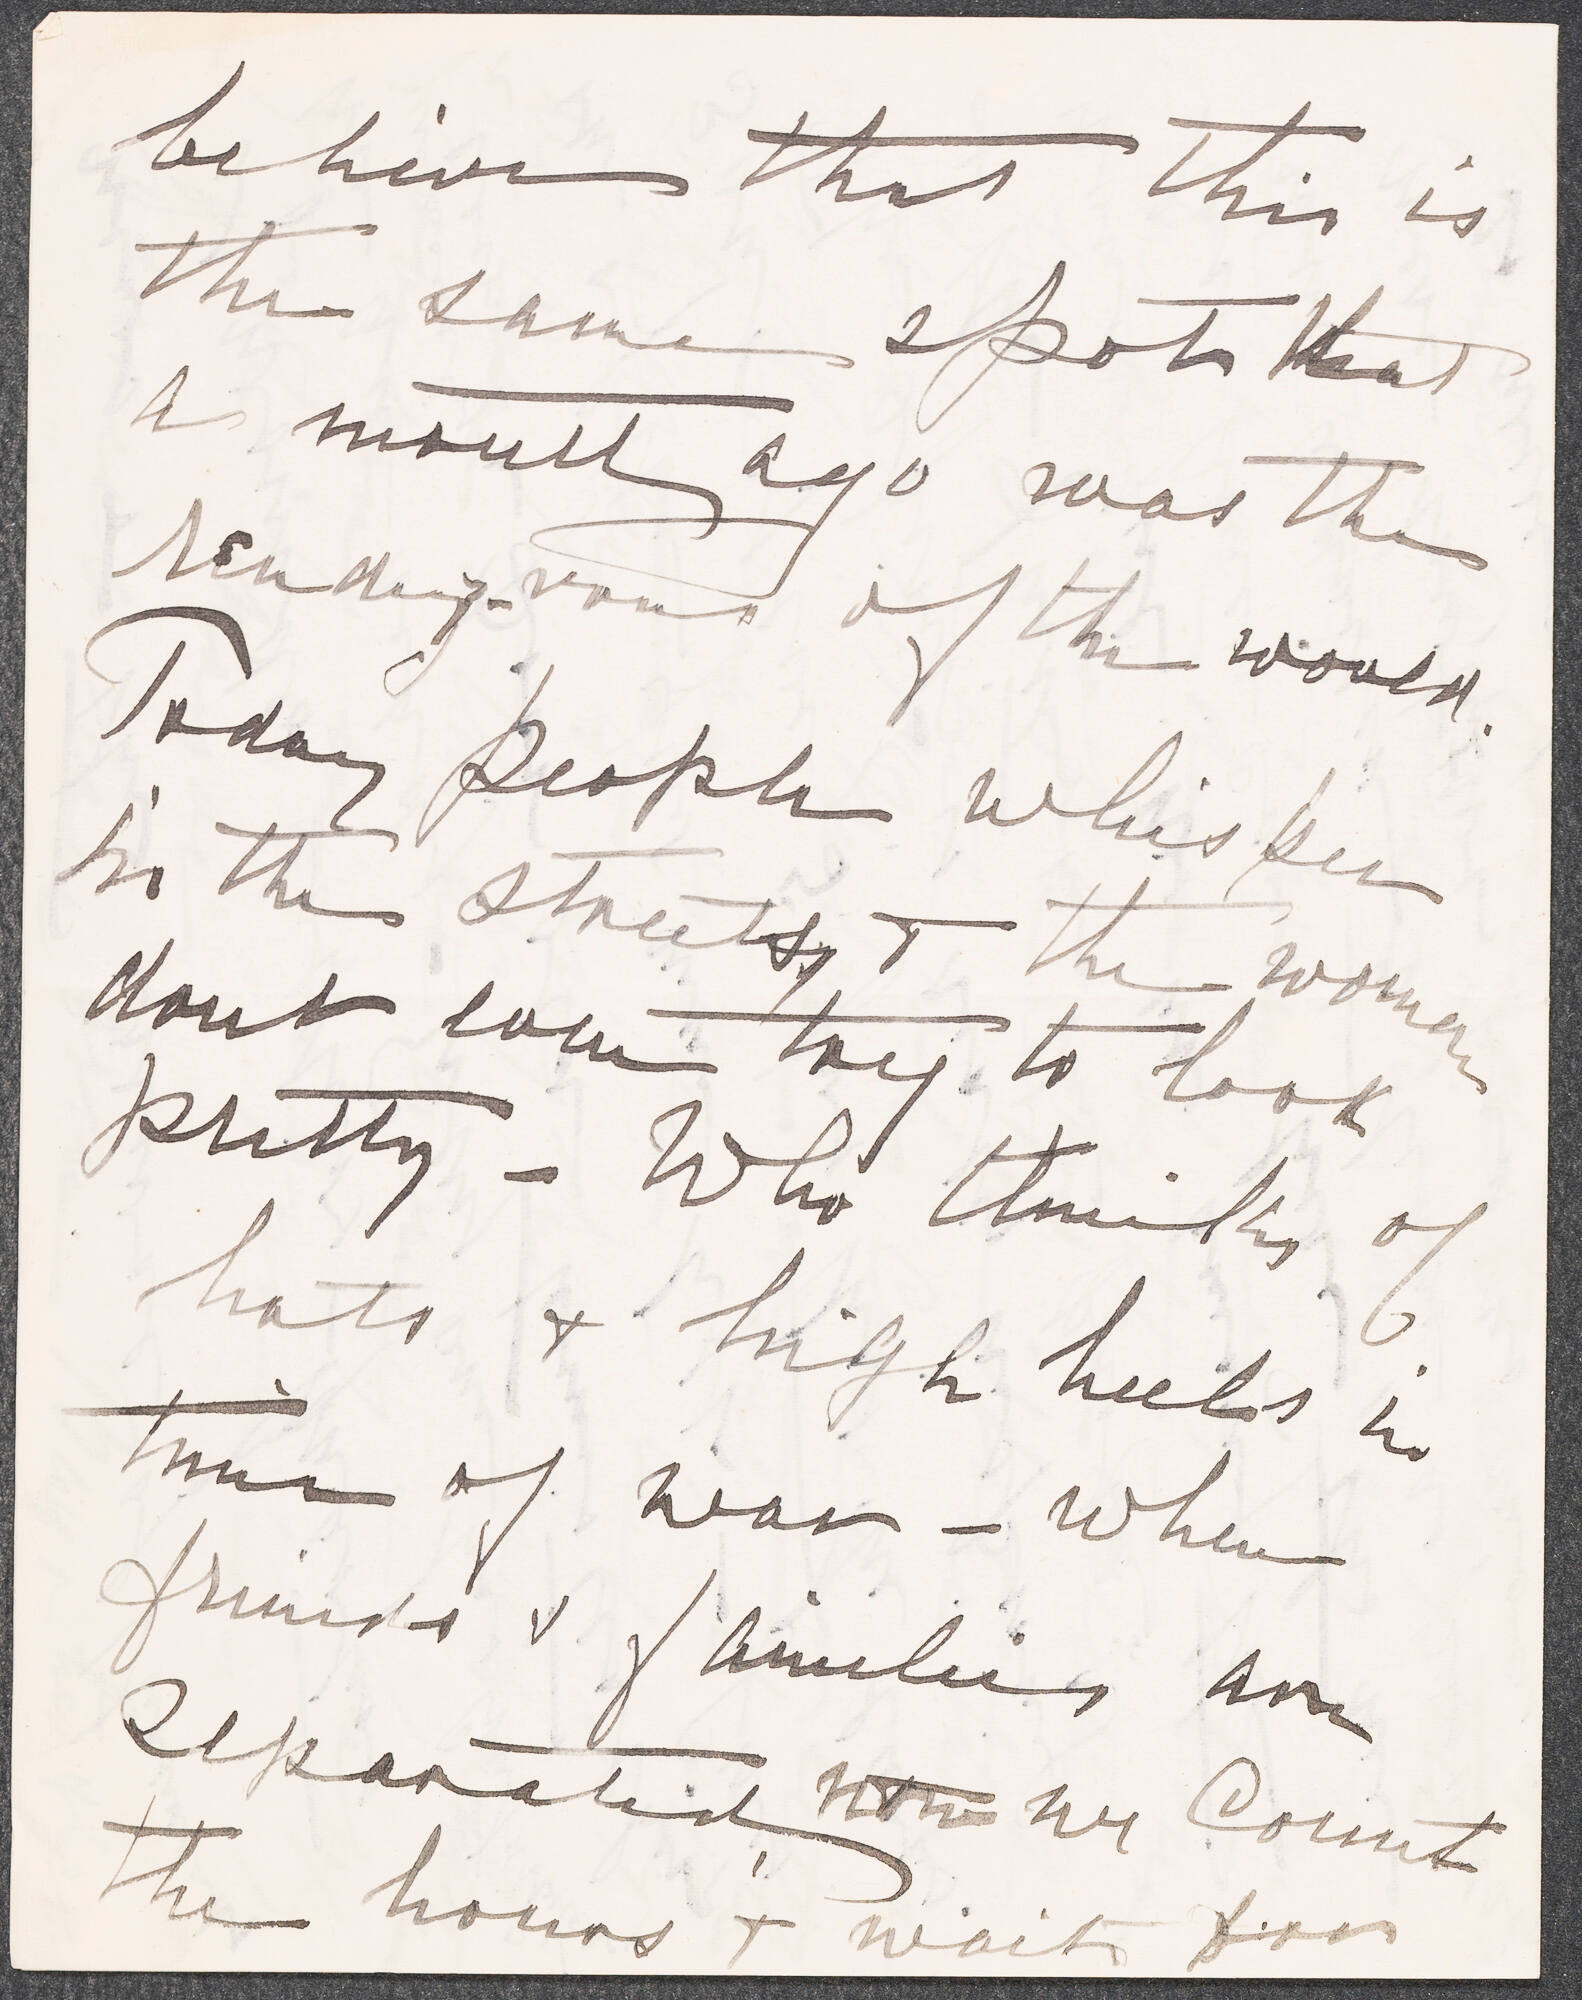 believe that this is
the same spot that
a month ago was the
rendez-vous of the world.
Today people whisper
in the streets, + the women
dont even try to look
pretty - Who thinks of
hats + high heels in
time of war - when
friends + families are
separated now we count
the hours + wait for